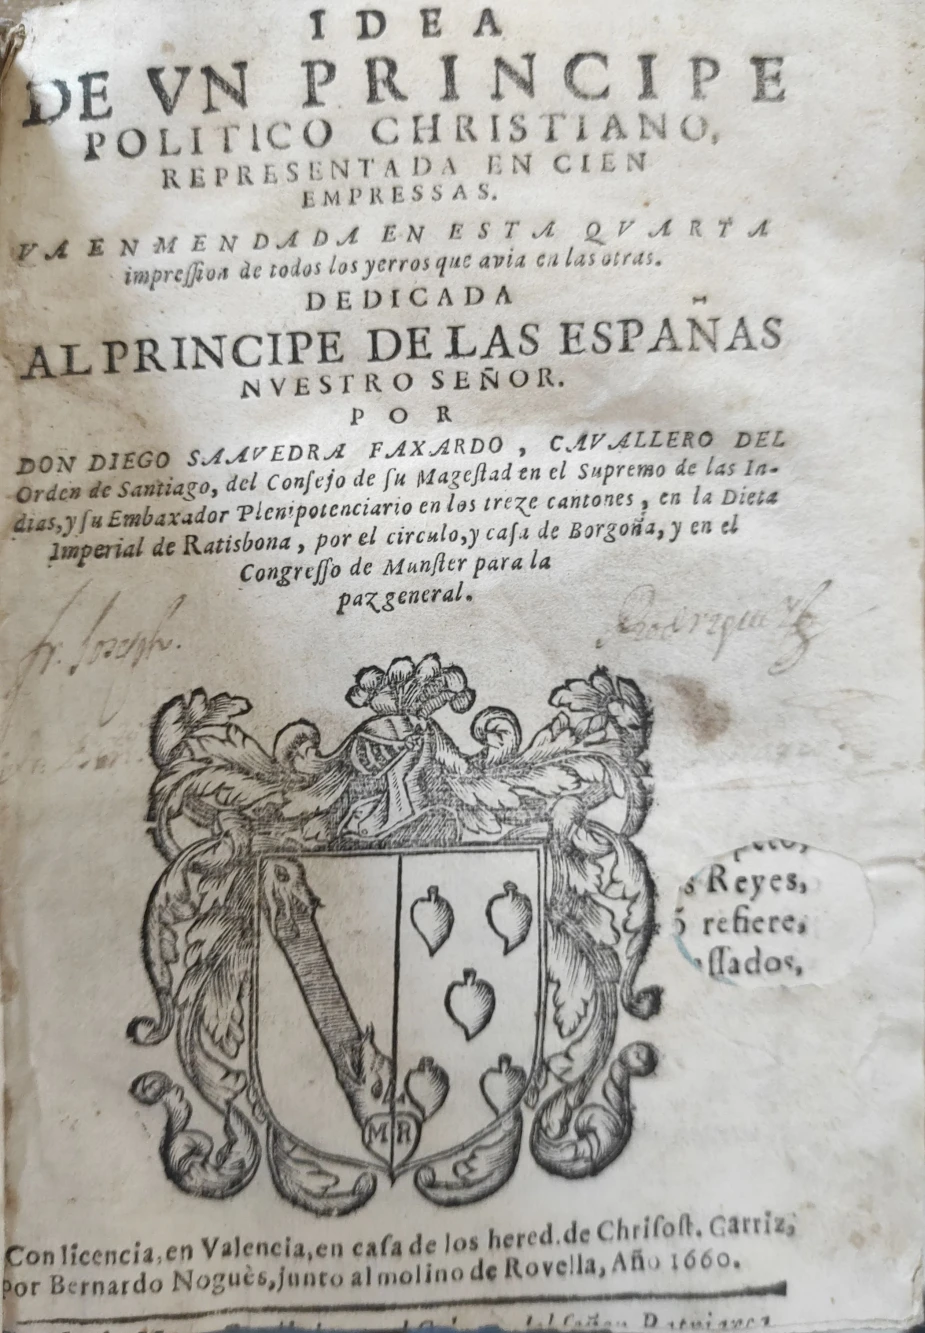 IDEA
DE VN PRINCIPE
POLITICO CHRISTIANO,
REPRESENTADA EN CIEN
EMPRESSAS.
VA ENMENDADA EN ESTA QVARTA
impreſſion de todos los yerros que avia en las otras.
DEDICADA
AL PRINCIPE DE LAS ESPAÑAS
NVESTRO SEÑOR.
POR
DON DIEGO SAAVEDRA FAXARDO, CAVALLERO DEL
Orden de Santiago, del Conſejo de ſu Mageſtad en el Supremo de las In-
dias, y ſu Embaxador Plenipotenciario en los treze cantones, en la Dieta
Imperial de Ratisbona, por el circulo, y caſa de Borgoña, y en el
Congreſſo de Munſter para la
paz general.
fr. Joseph. Rodriguez
s Reyes,
õ refiere,
ſſados,
MR
Con licencia, en Valencia, en caſa de los hered. de Chriſoſt. Garriz,
por Bernardo Noguès, junto al molino de Rovella, Año 1660.